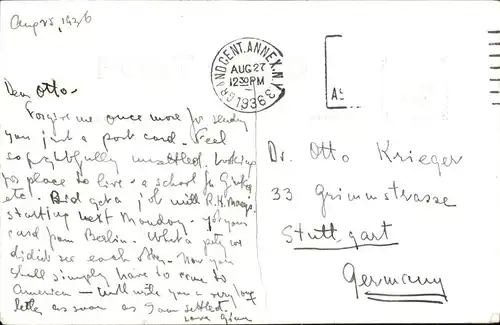 Aug 25, 1936
Dear Otto -
Forgive me once more for sending
you just a post card. Feel
so frightfully unsettled. Looking
for place to live - a school for
etc. Did get a job with R.H. Macys
starting next Monday - got your
card from Berlin. What a pity we
didn't see each other. Now you
shall simply have to come to
America - will write you a very long
letter as soon as I am settled.
Love
GRAND CENT. ANNEX. N.Y.
AUG 27
12 30 PM
1936
Dr. Otto Krieger
33 Grimmstrasse
Stuttgart
Germany